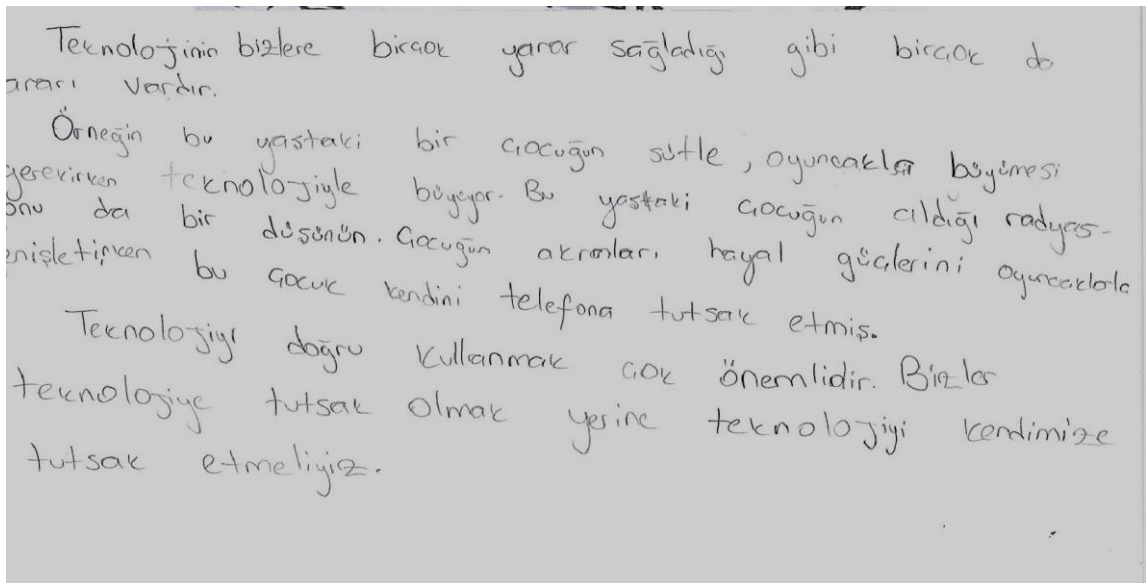 Teknolojinin bizlere birçok yarar sağladığı gibi birçok da
ararı vardır.
Örneğin bu yastaki bir çocuğun sütle, oyuncakla büyümesi
gerekirken teknolojiyle büyüyor. Bu yastaki çocuğun aldığı radyas-
onu da bir düşünün. Çocuğun akranları hayal güçlerini oyuncaklarla
enişletirken bu çocuk kendini telefona tutsak etmiş.
Teknolojiyi doğru kullanmak çok önemlidir. Bizler
teknolojiye tutsak olmak yerine teknolojiyi kendimize
tutsak etmeliyiz.